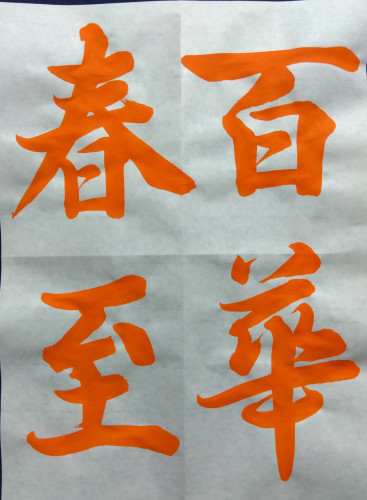 百華
春至